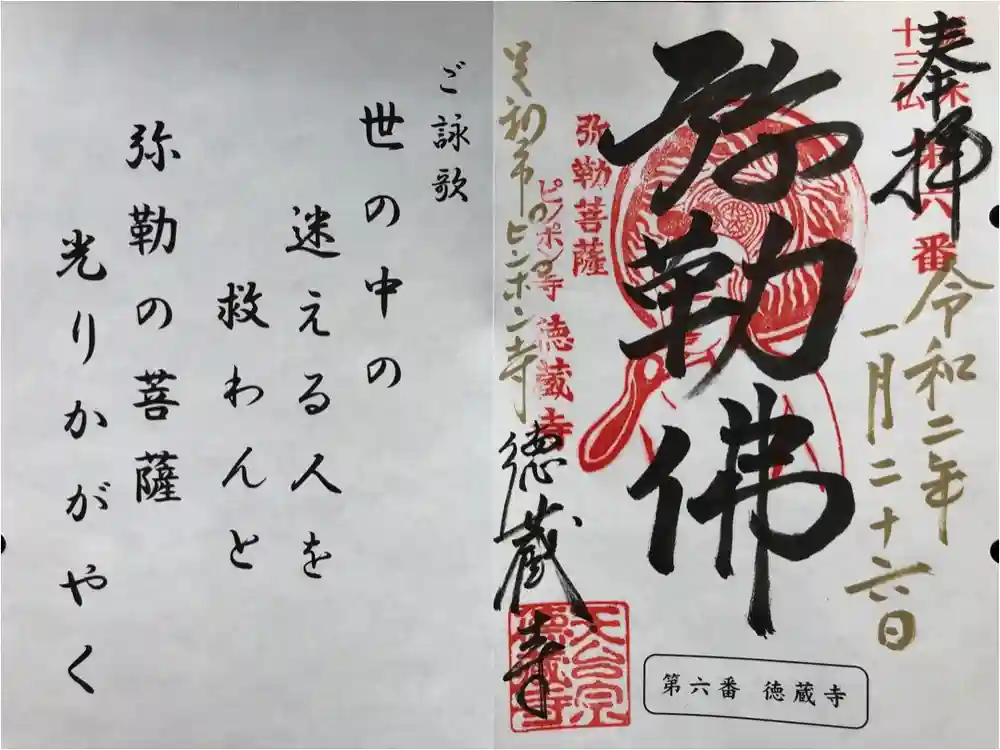 奉拝
十三仏
六番
令和二年
一月二十六日
弥勒佛
弥勒菩薩
ピンポン寺 徳蔵寺
足利市のピンポン寺
徳蔵寺
天台宗
徳蔵寺
第六番 徳蔵寺
ご詠歌
世の中の
迷える人を
救わんと
弥勒の菩薩
光りかがやく